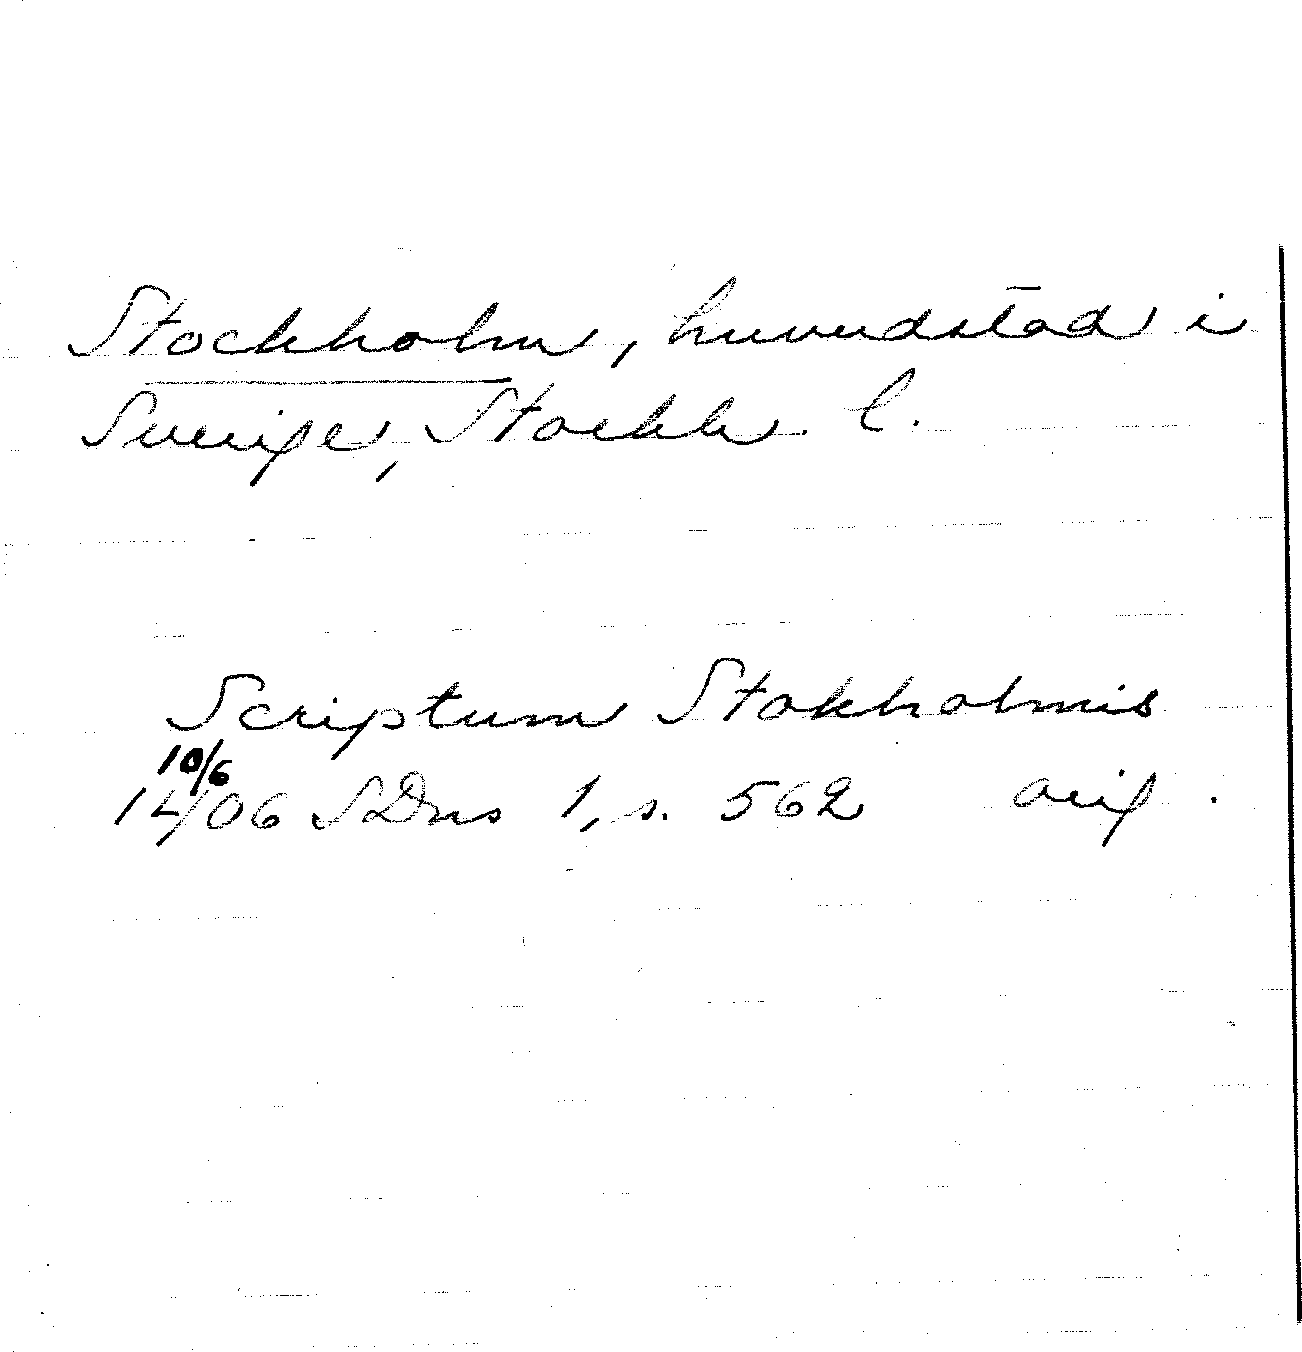 Stockholm, huvudstad i
Sverige, Stockh. l.
Scriptum Stokholmis
10/6
1406 SDns 1, s. 562 orig.